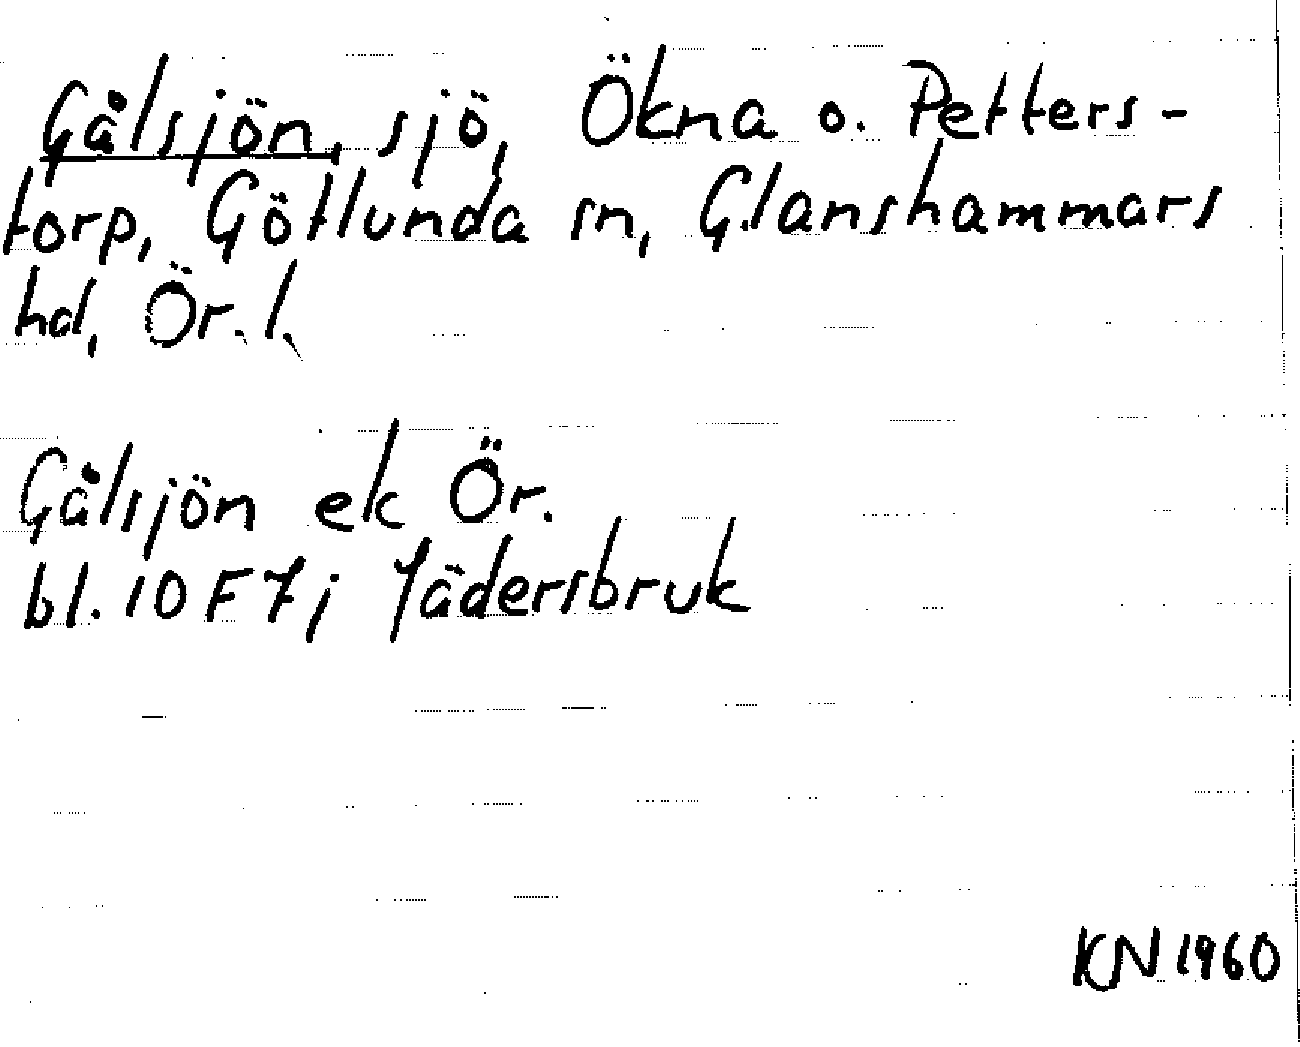 Gålsjön, sjö, Ökna o. Petters-
torp, Götlunda sn, Glanshammars
hd, Ör. l.
Gålsjön ek Ör.
bl. 10 F 7j Jädersbruk
KN 1960